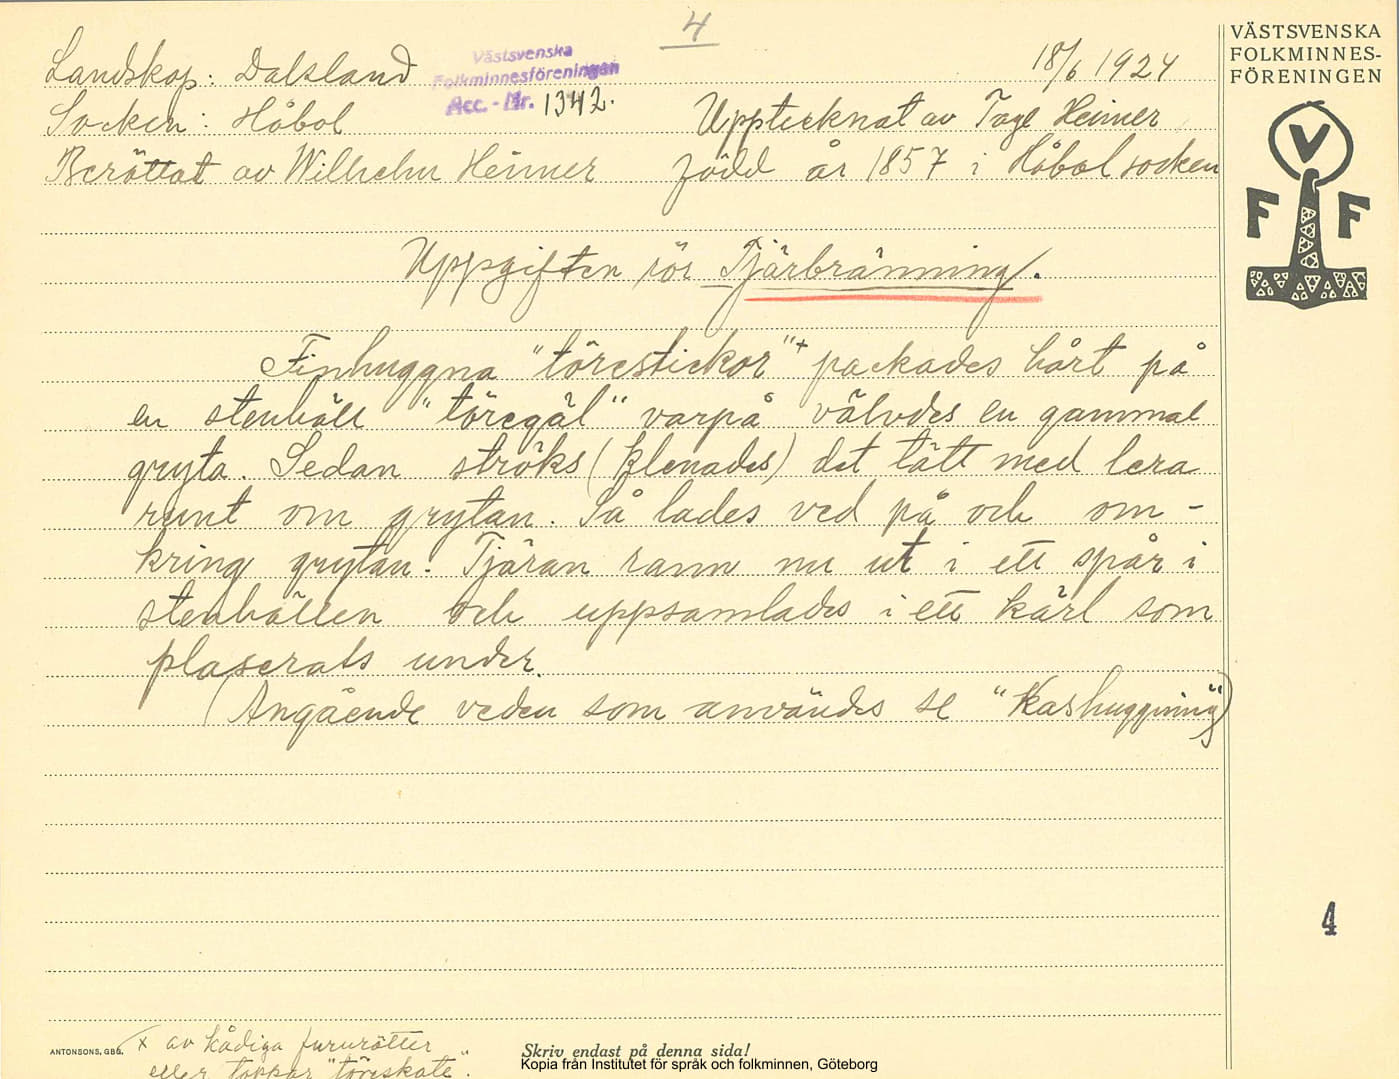 4
Landskap: Dalsland
Västsvenska
Folkminnesföreningen
Acc.-Nr. 1342.
18/6 1924
Socken: Håbol
Upptecknat av Tage Heimer
Berättat av Wilhelm Heimer född år 1857 i Håbol socken
VÄSTSVENSKA
FOLKMINNES-
FÖRENINGEN
V
F F
Uppgiften rör Tjärbränning.
Finhuggna "törestickor"+ packades hårt på
en stenhäll "töregäl" varpå välvdes en gammal
gryta. Sedan ströks (klenades) det tätt med lera
runt om grytan. Så lades ved på och om-
kring grytan. Tjäran rann nu ut i ett spår i
stenhällen och uppsamlades i ett kärl som
plaserats under.
(Angående veden som användes se "Kashuggning")
4
x av kådiga fururötter
eller toppar "töreskate".
ANTONSONS, GBG.
Skriv endast på denna sida!
Kopia från Institutet för språk och folkminnen, Göteborg